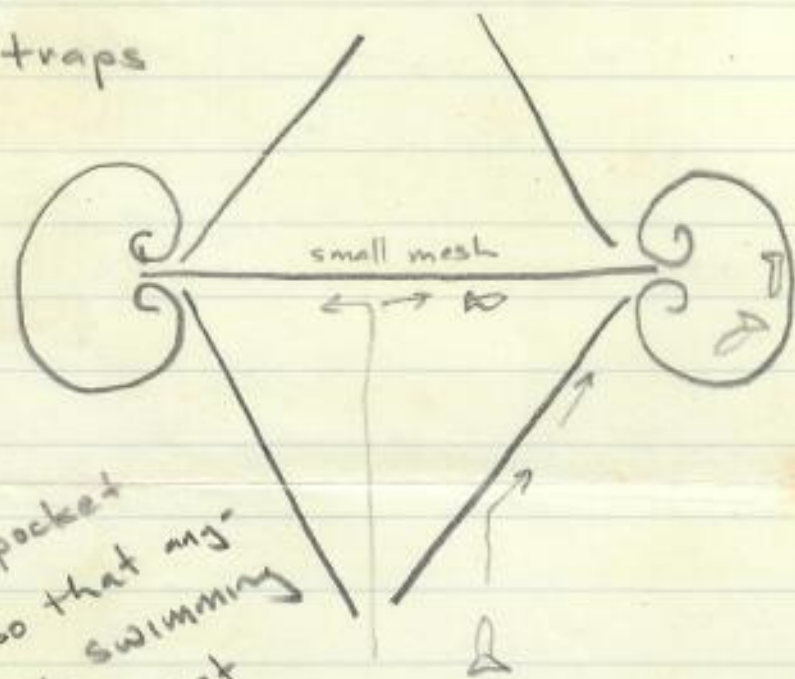 traps
small mesh
pocket
so that any-
swimming